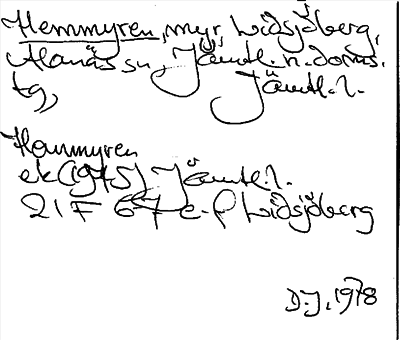 Hemmyren, myr, Lidsjöberg,
Alanäs sn, Jämtl. n. doms.
tg, Jämtl. l.
Hemmyren
ek (1975), Jämtl. l.
21 F 6-7 e-f Lidsjöberg
D.J. 1978